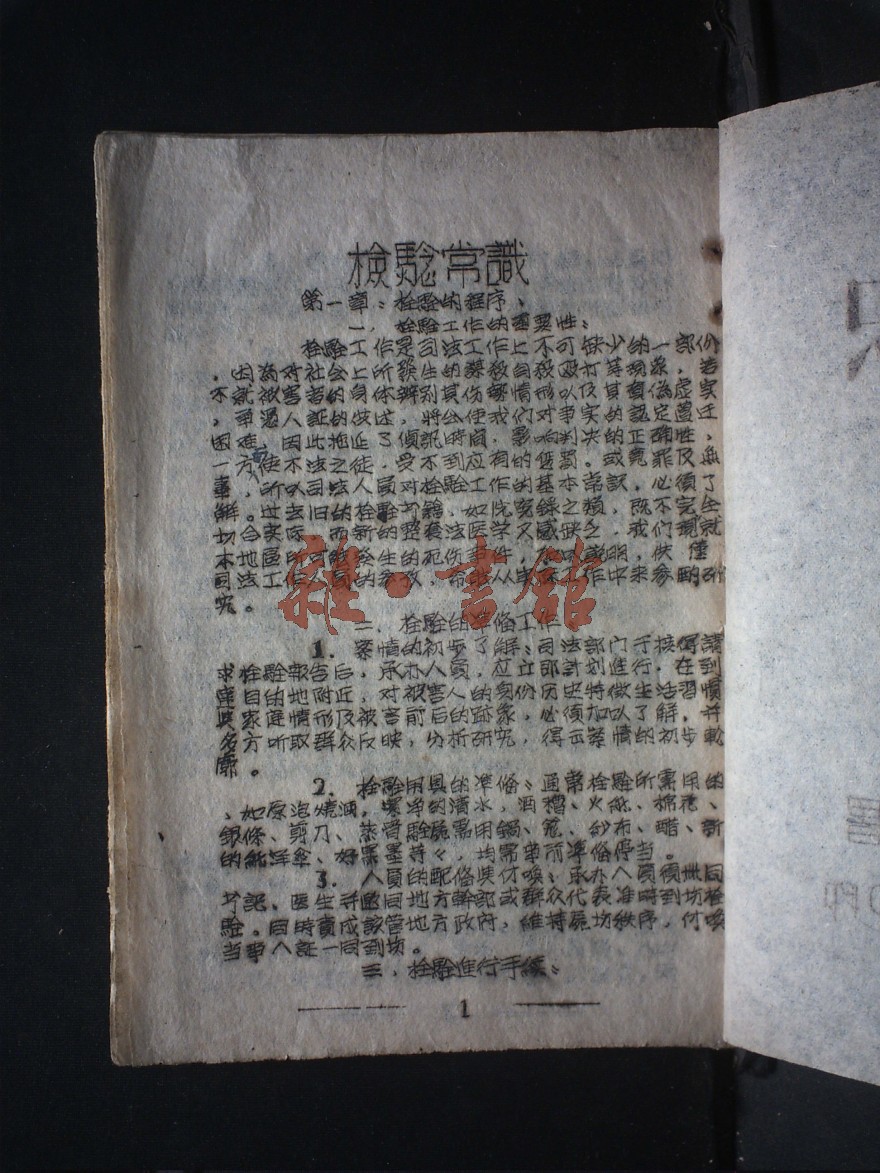 檢騐常識
第一章：检驗的程序：
一．检驗工作的重要性：
检驗工作是司法工作上不可缺少的一部份
，因為对社会上所發生的謀殺自殺殴打等現象，若
不就被害者的身体辨别其伤害情形以及其真偽虚实
，单憑人証的伎述，将会使我们对事实的認定置
困难，因此拖延了偵訊時間，影响判决的正确性，
一方使不法之徒，受不到应有的惩罰。或冤罪及無
辜，所以司法人員对检驗工作的基本常識，必須了
解。过去旧的检驗书籍，如洗寃錄之類，既不完全
切合实际，而新的整套法医学又感缺乏，我们現就
本地区所
司法工作人員的参攷，希望从实际工作中来参酌研
究。
二．检驗的準俻工作
1．案情的初步了解：司法部门于接得請
求检驗報告后，承办人員，应立即計划進行．在到
達目的地附近，对被害人的身份历史特徵生活習慣
與家庭情形及被害前后的跡象，必須加以了解，并
多方听取群众反映，分析研究，得出案情的初步
廓。
2．检驗用具的準俻：通常检驗所需用的
、如原泡燒酒，潔净的清水，酒糟、火紙、棉花、
銀條、剪刀、蒸骨驗屍需用鍋、笼、紗布、醋、新
的紙洋伞、好濃墨等々，均需事前準俻停当。
3．人員的配俻與付喚：承办人員須
书記、医生并邀同地方幹部或群众代表准時到坊检
驗。同時責成該管地方政府，維持屍坊秩序，付喚
当事人証一同到坊。
三．检驗進行手續：
1
雜·書館